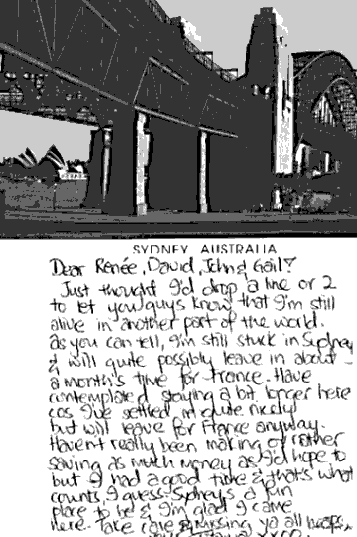 SYDNEY AUSTRALIA
Dear Renée, David, John & Gail!
Just thought I'd drop a line or 2
to let you guys know that I'm still
alive in another part of the world.
As you can tell, I'm still stuck in Sydney
& will quite possibly leave in about
a month's time for France. Have
contemplated staying a bit longer here
cos I've settled in quite nicely
but will leave for France anyway.
Haven't really been making or rather
saving as much money as I'd hope to
but I had a good time & that's what
counts, I guess. Sydney's a fun
place to be & I'm glad I came
here. Take care & Missing ya all heaps.